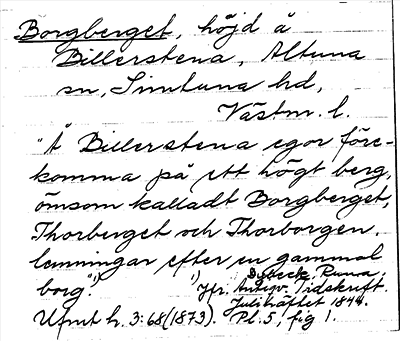 Borgberget, höjd å
Billerstena, Altuna
sn, Simtuna hd,
Västm. l.
"Å Billerstena egor före-
komma på ett högt berg,
ömsom kalladt Borgberget,
Thorberget och Thorborgen,
lemningar efter en gammal
borg".¹)
¹) Jfr. Dybeck, Runa,
Antiqv. Tidskrift.
Julihäftet 1844.
Ufmt h. 3:68 (1873). Pl. 5, fig 1.